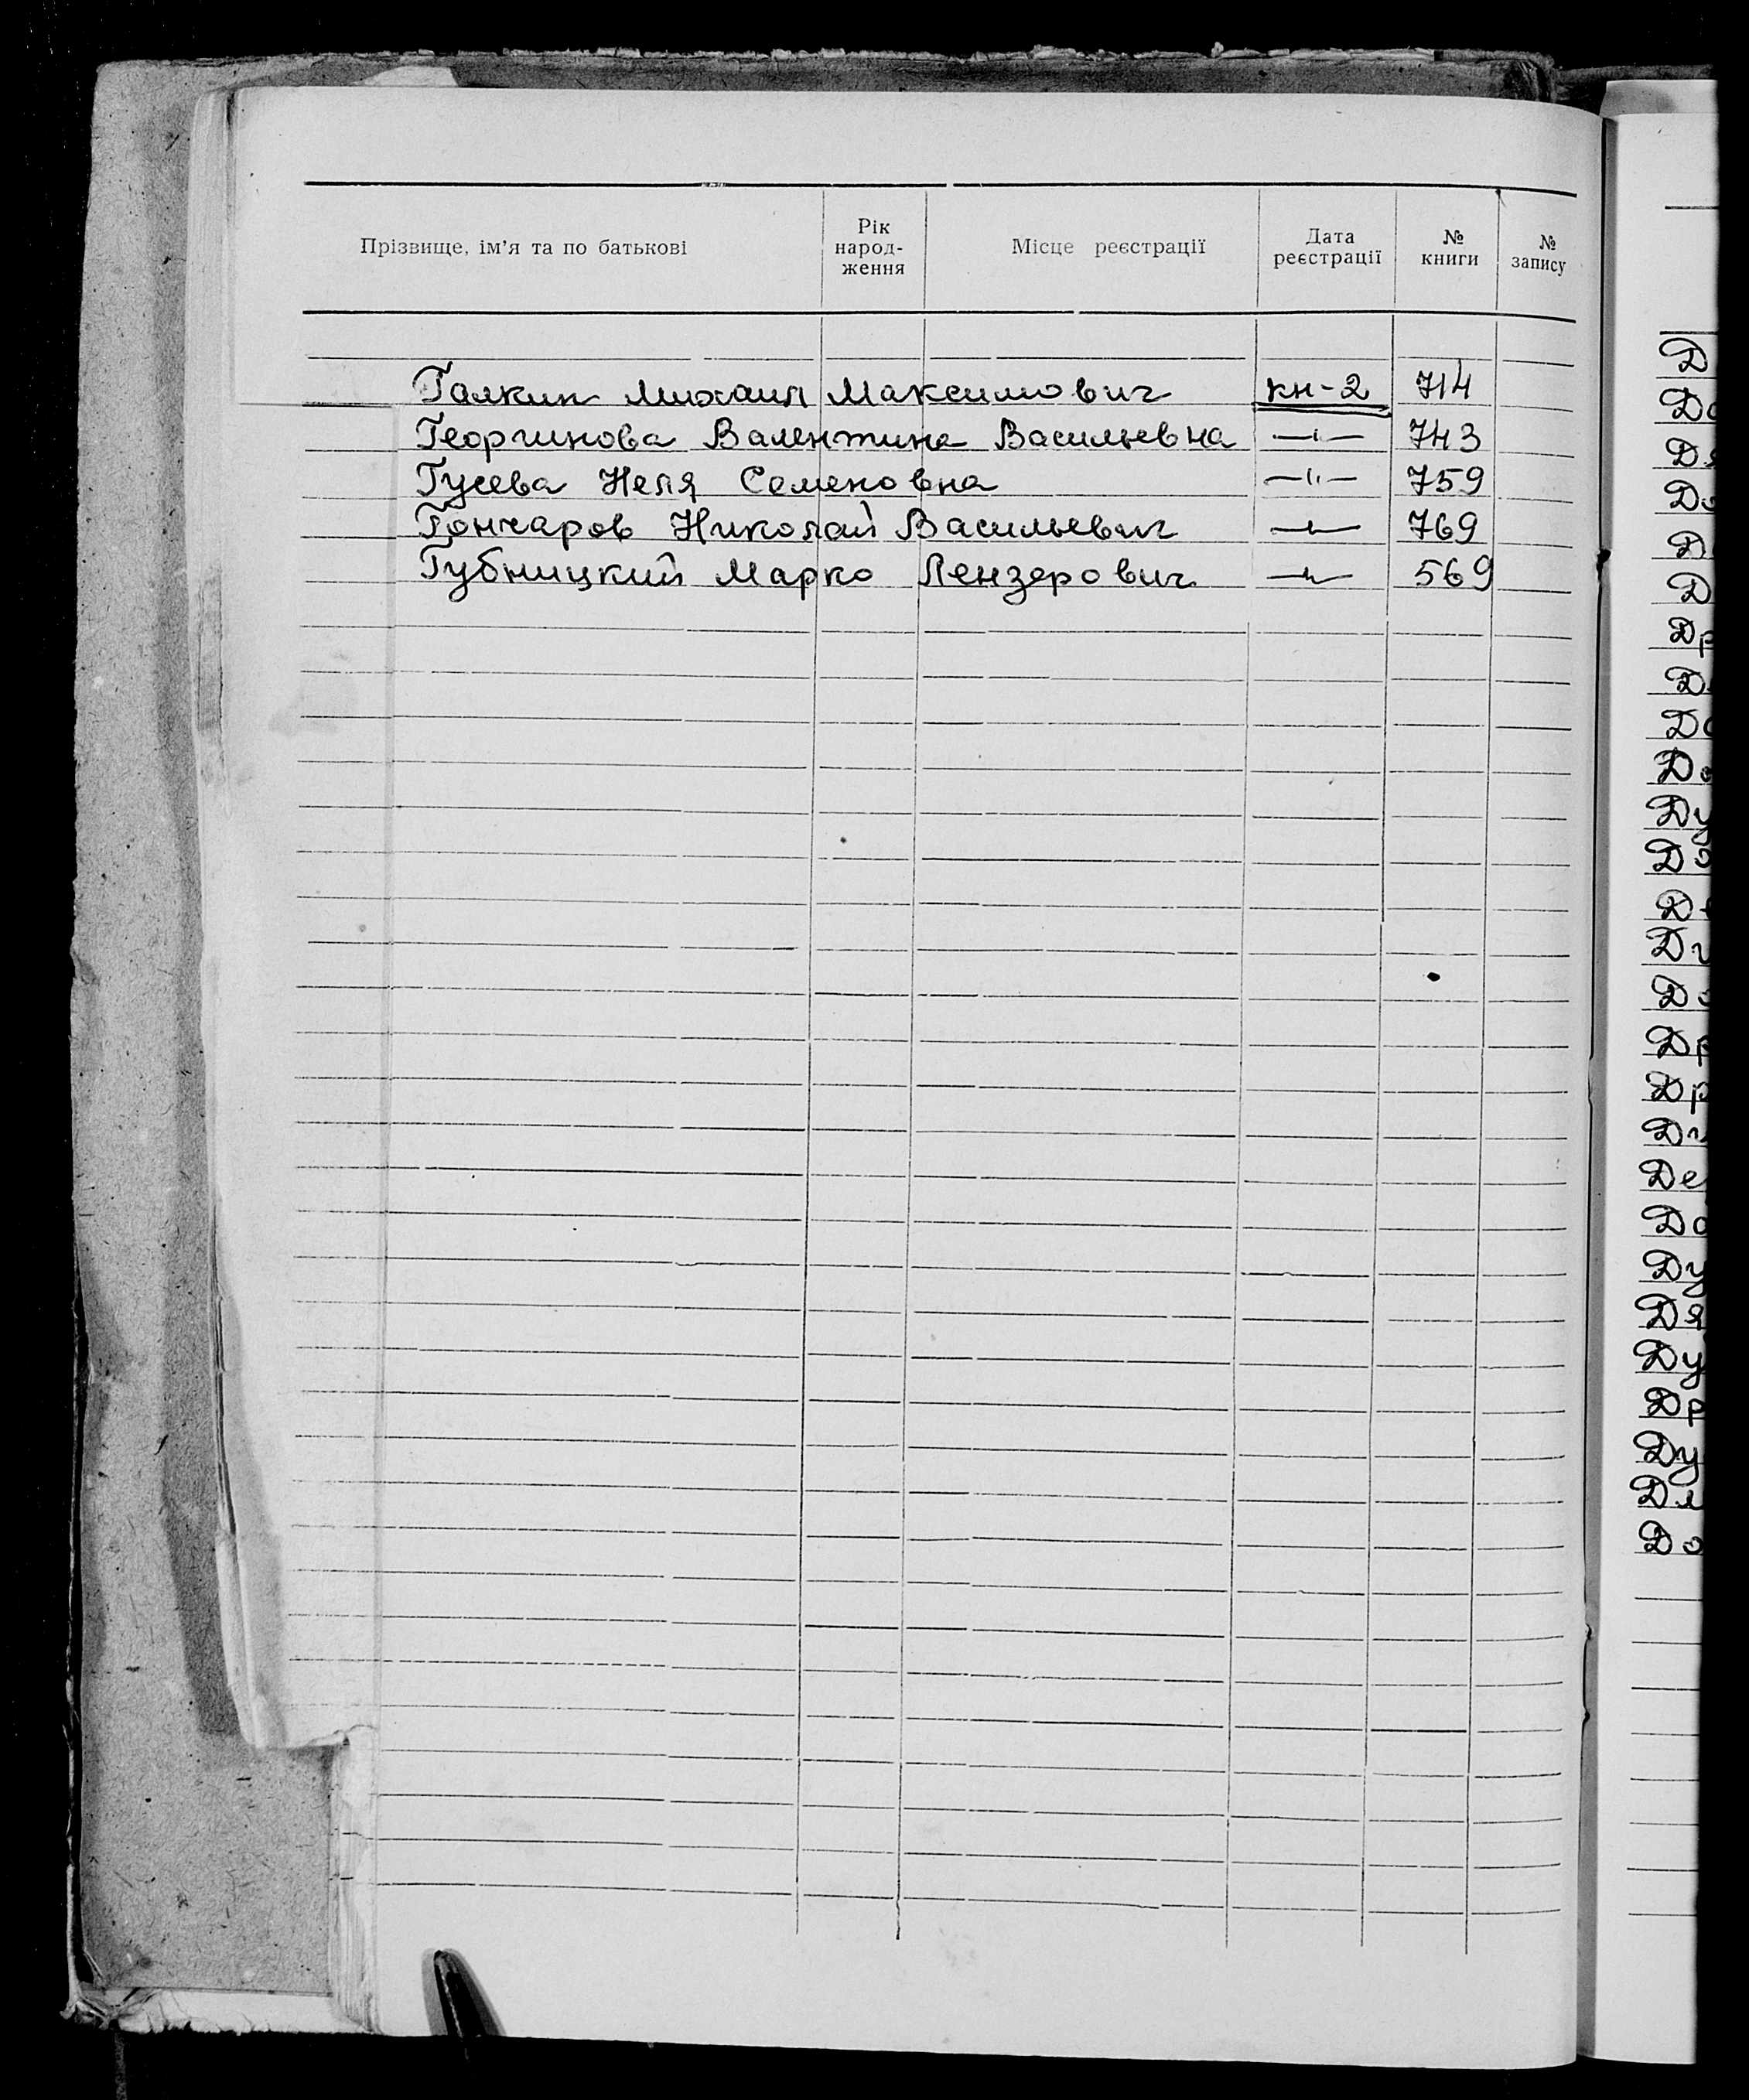 Прізвище, ім'я та по батькові Рік народ- ження Місце реєстрації Дата реєстрації № книги № запису
Галкин Михаил Максимович кн-2 714
Георгинова Валентина Васильевна —"— 743
Гусева Неля Семеновна —"— 759
Гончаров Николай Васильевич —"— 769
Губницкий Марко Лензерович —"— 569
Д
До
Дя
До
Д
Др
Д
До
До
Ду
До
Д
Д
До
Др
Др
Д
Де
До
Ду
Дя
Ду
Др
Ду
Дл
До